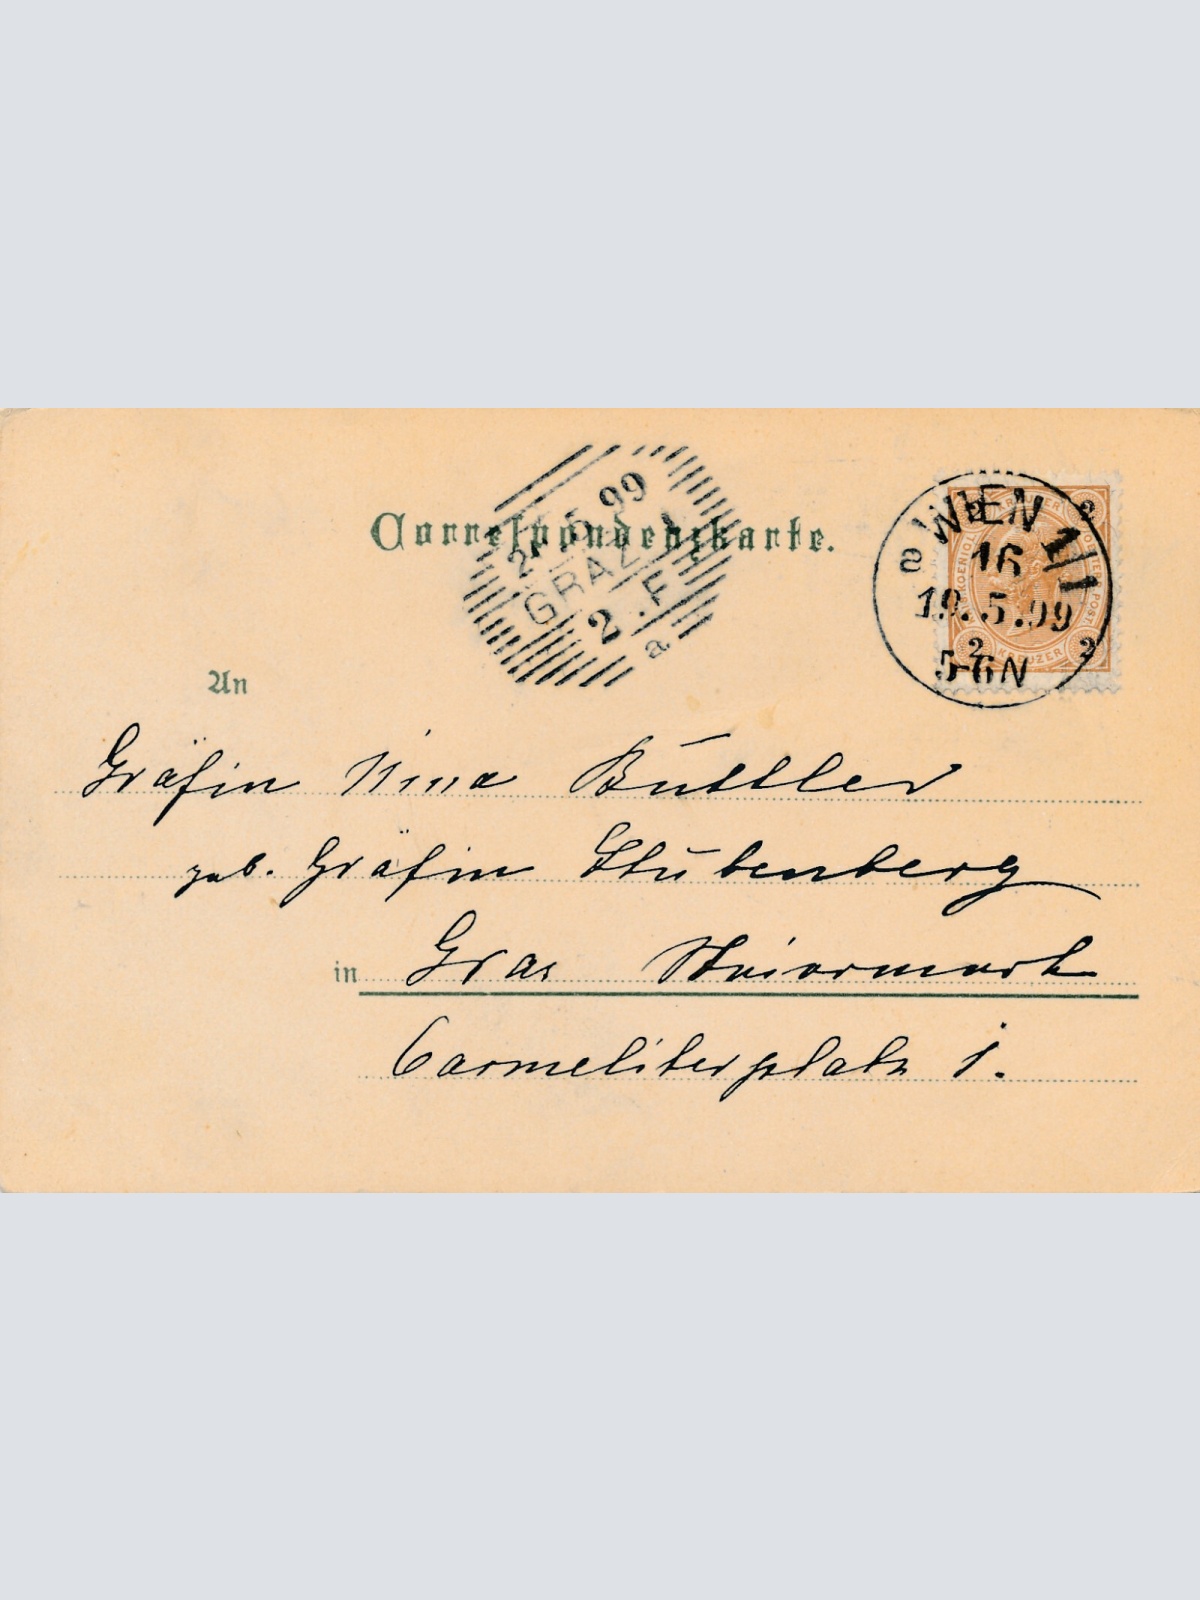 Correspondenzkarte.
99
GRAZ
2 .F
a
a WIEN 1/1
16
19.5.99
5-6N
2 2
2 KREUZER 2
An
Gräfin Nina Buttler
geb. Gräfin Stubenberg
in Graz Steiermark
Carmeliterplatz 1.